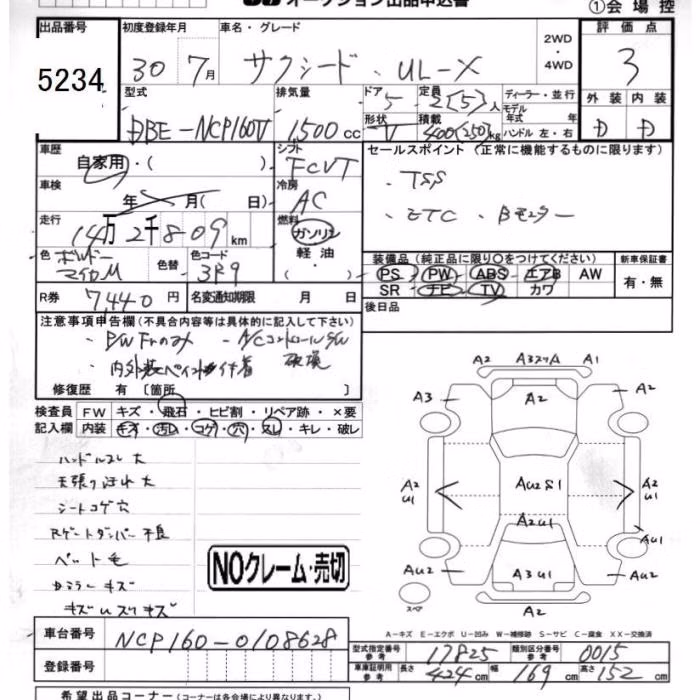 オークション出品申込書
①会場控
出品番号
5234
初度登録年月
30 7月
車名・グレード
サクシード UL-X
2WD
・
4WD
評価点
3
外装 内装
D D
型式
DBE-NCP160V
排気量
1500cc
ドア
5
定員
2(5)人
形状
V
積載
400(250)kg
ディーラー・並行
モデル年式 年式
ハンドル 左・右
車歴
自家用・( )
シフト
FCVT
車検
年 月( 日)
冷房
AC
走行
14万2千809km
燃料
ガソリン
軽油・
( )
色
ボルドーマイカM
色替
色コード
3R9
R券
7,440円
名変通知期限 月 日
セールスポイント(正常に機能するものに限ります)
・TSS
・ETC ・Bモニター
装備品(純正品に限り○をつけてください)
PS PW ABS エアB AW
SR ナビ TV カワ
新車保証書
有・無
後日品
注意事項申告欄(不具合内容等は具体的に記入して下さい)
・PW Frのみ ・A/CコントロールSW破損
・内外装ペイント付着
修復歴 有〔箇所 〕
検査員記入欄
FW キズ・飛石・ヒビ割・リペア跡・×要
内装 キズ・汚レ・コゲ・穴・スレ・キレ・破レ
ハンドルスレ大
天張り汚れ大
シートコゲ穴
Rゲートダンパー不良
ペット毛
キズ
キズUスリキズ
NOクレーム・売切
A2 A3スリム A1
A3 A2 A2
A2 U1 AU2S1 A2 U1
A2U1 AU1
AU2 A3U1 AU2
A2
スペア
A-キズ E-エクボ U-凹み W-補修跡 S-サビ C-腐食 XX-交換済
車台番号
NCP160-0108628
登録番号
型式指定番号 参考
17825
類別区分番号 参考
0015
車庫証明用 参考
長さ 424cm 幅 169cm 高さ 152cm
希望出品コーナー(コーナーは各会場により異なります)